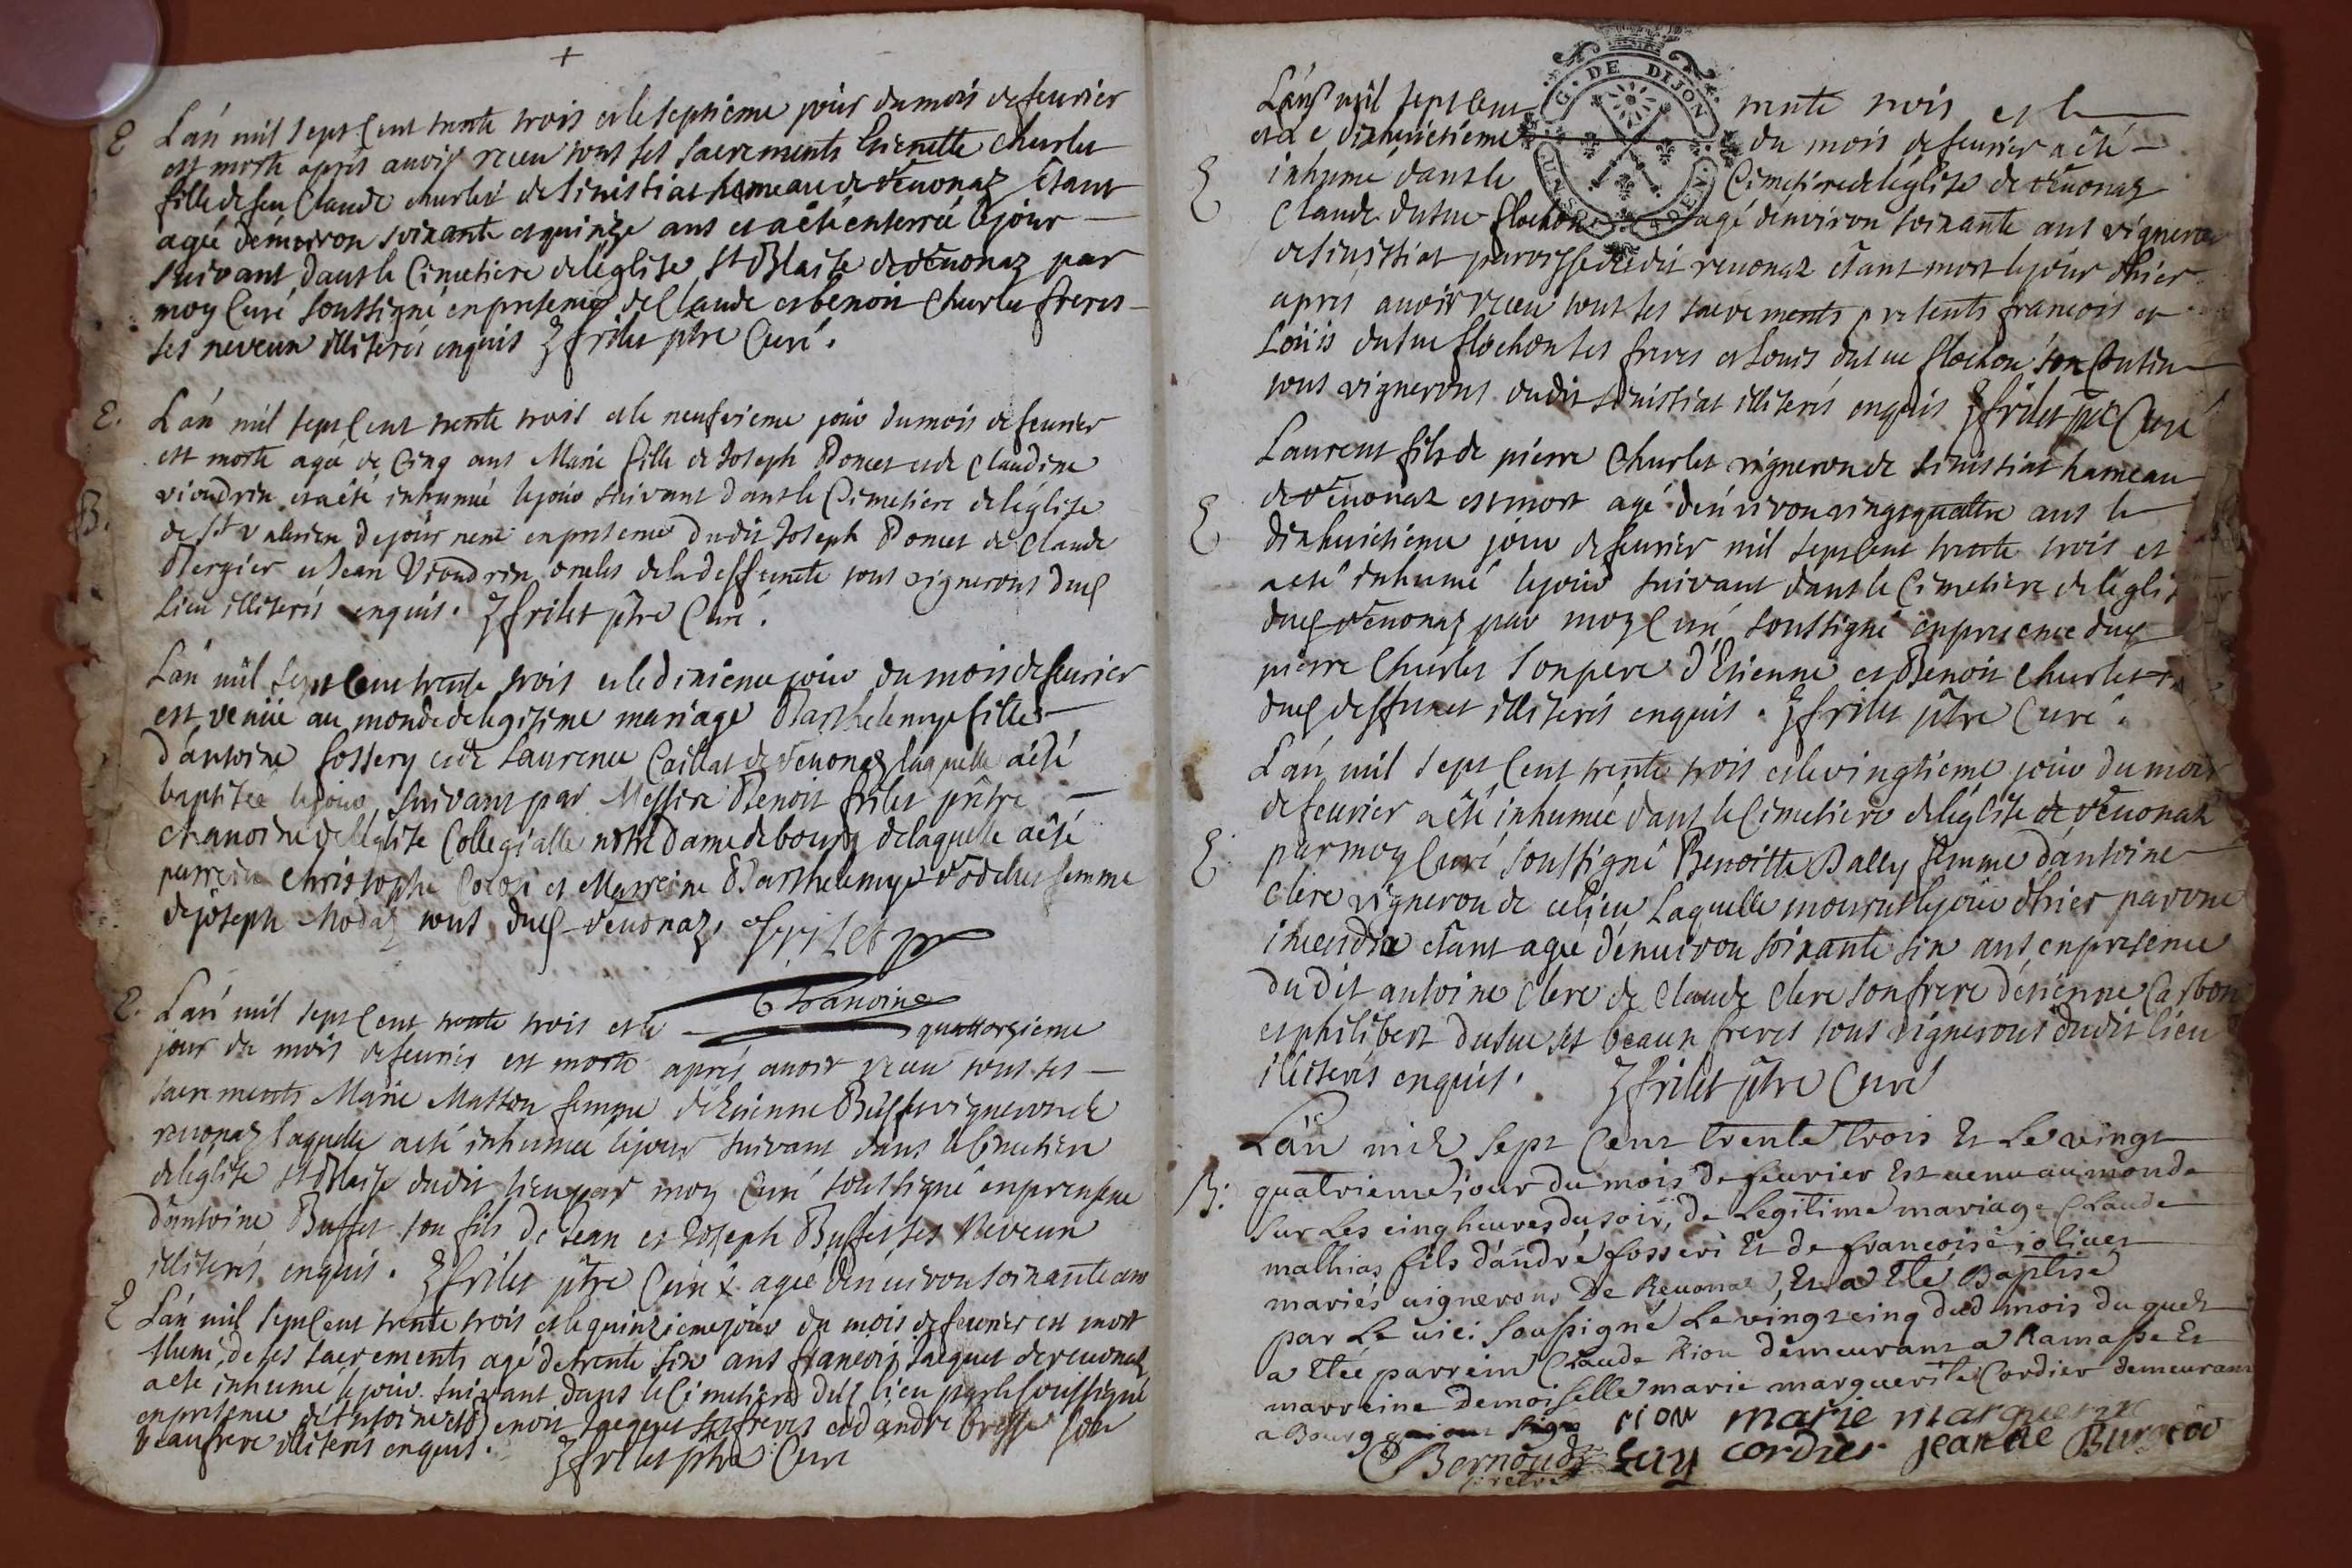 +
E Lán mil sept Cent trente trois et le septieme jour du mois de feurier
est morte aprés auoir receu tous ses sacrements Etienette Churlet
fille de feu Claude churlet de Sinistiat hameau de réuonaz êtant
agée dénuiron soixante et quinze ans et a été enterrée le jour
suivant dans le Cimetiere de léglise St Blaise de réuonaz par
moy Curé soussigné en presence de Claude et benoit Churlet freres
ses neveux illiterés enquis frilet ptre Curé.
E. Lán mil sept Cent trente trois et le neufvieme jour du mois de feurier
est morte agée de Cinq ans Marie fille de Joseph Poncet et de Claudine
B. vioudrin et a été inhumée le jour suivant dans le Cimetiere de léglise
de St valerien de journent en presence dudit Joseph Poncet de Claude
Bergier et Jean Vioudrin oncles de la deffuncte tous vignerons dud
lieu illiterés enquis. frilet ptre Curé.
Lán mil sept Cent trente trois et le dixieme jour du mois de feurier
est venüe au monde de legitime mariage Barthelemye fille
d'antoine fossery et de Laurence Caillat de réuonaz laquelle a été
baptisée le jour suivant par Messire Benoit frilet prêtre
chanoine de léglise Collegialle notre Dame de bourg de laquelle a été
parrein Christophe Colon et Marreine Barthelemye rodet femme
de joseph Modaz tous dud réuonaz. frilet ptre
Chanoine
E. Lán mil sept Cent trente trois et le quattorzieme
jour du mois de feurier est morte aprés auoir receu tous ses
sacrements Marie Matton femme de Etienne Buffet vigneron de
reuonaz laquelle a été inhumée le jour suivant dans le Cimetiere
de léglise St Blaise dudit lieu par moy Curé soussigné en presence
dantoine Buffet son fils de Jean et Joseph Buffet ses Neveux
illiterés enquis. frilet ptre Curé x agée dénuiron soixante ans
E Lán mil sept Cent trente trois et le quinzieme jour du mois de feurier est mort
Muni de ses sacrements agé de trente six ans francois Jacquet de reuonaz
a été inhumé le jour suivant dans le Cimetiere dud lieu par le soussigné
en presence d'Antoine et Benoit Jacquet ses freres et d'andré Bresse son
beaufrere illiterés enquis. frilet ptre Curé
G. DE DIJON
Lán mil sept Cent trente trois et le
et Le dixhuictieme du mois de feurier a été
E inhumé dans le Cimetiere de léglise de réuonaz
Claude dutue flochon agé dénviron soixante ans vigneron
de sinistiat paroisse dudit reuonaz étant mort le jour d'hier
apres auoir receu tous ses sacrements presents francois et
Loüis dutue flochon ses freres et Louis dutue flochon son Cousin
tous vignerons dudit Sinistiat illiterés enquis frilet ptre Curé
Laurent fils de pierre Churlet vigneron de Sinistiat hameau
E de réuonaz est mort agé dénviron vingt quattre ans le
dixhuictieme jour de feurier mil sept Cent trente trois et
a été inhumé le jour suivant dans le Cimetiere de léglise
dud réuonaz par moy Curé soussigné en presence dud
pierre Churlet son pere d'Etienne et Benoit Churlet
dud deffunct illiterés enquis. frilet ptre Curé.
Lán mil sept Cent trente trois et le vingtieme jour du mois
de feurier a été inhumée dans le Cimetiere de léglise de réuonaz
E par moy Curé soussigné Benoitte Bally femme dántoine
Clere vigneron de ce lieu Laquelle mourut le jour d'hier par une
incendie étant agée dénuiron soixante six ans en presence
du dit antoine Clere de Claude Clere son frere détienne Carbon
et philibert dutue ses beaux freres tous vignerons dudit lieu
illiterés enquis. frilet ptre Curé
Lán mil Sept Cent trente trois Et Le vingt
B: quatrieme jour du mois de feurier Est uenu au monde
sur Les cinq heures du soir, de Legitime mariage Claude
mathias fils d'andré fosseri Et de francoise oliuet
mariés uignerons De Reuonaz, Et a Eté Baptisé
par Le uic: Soussigné Le vingt cinq dud mois du quel
a Etée parrein Claude Riou demeurant a Ramasse Et
marreine demoiselle marie marguerite Cordier demeurant
a Bourg qui ont signé riou marie marguerite
Bernoud Luy cordier jeanne Burgeod
pretre